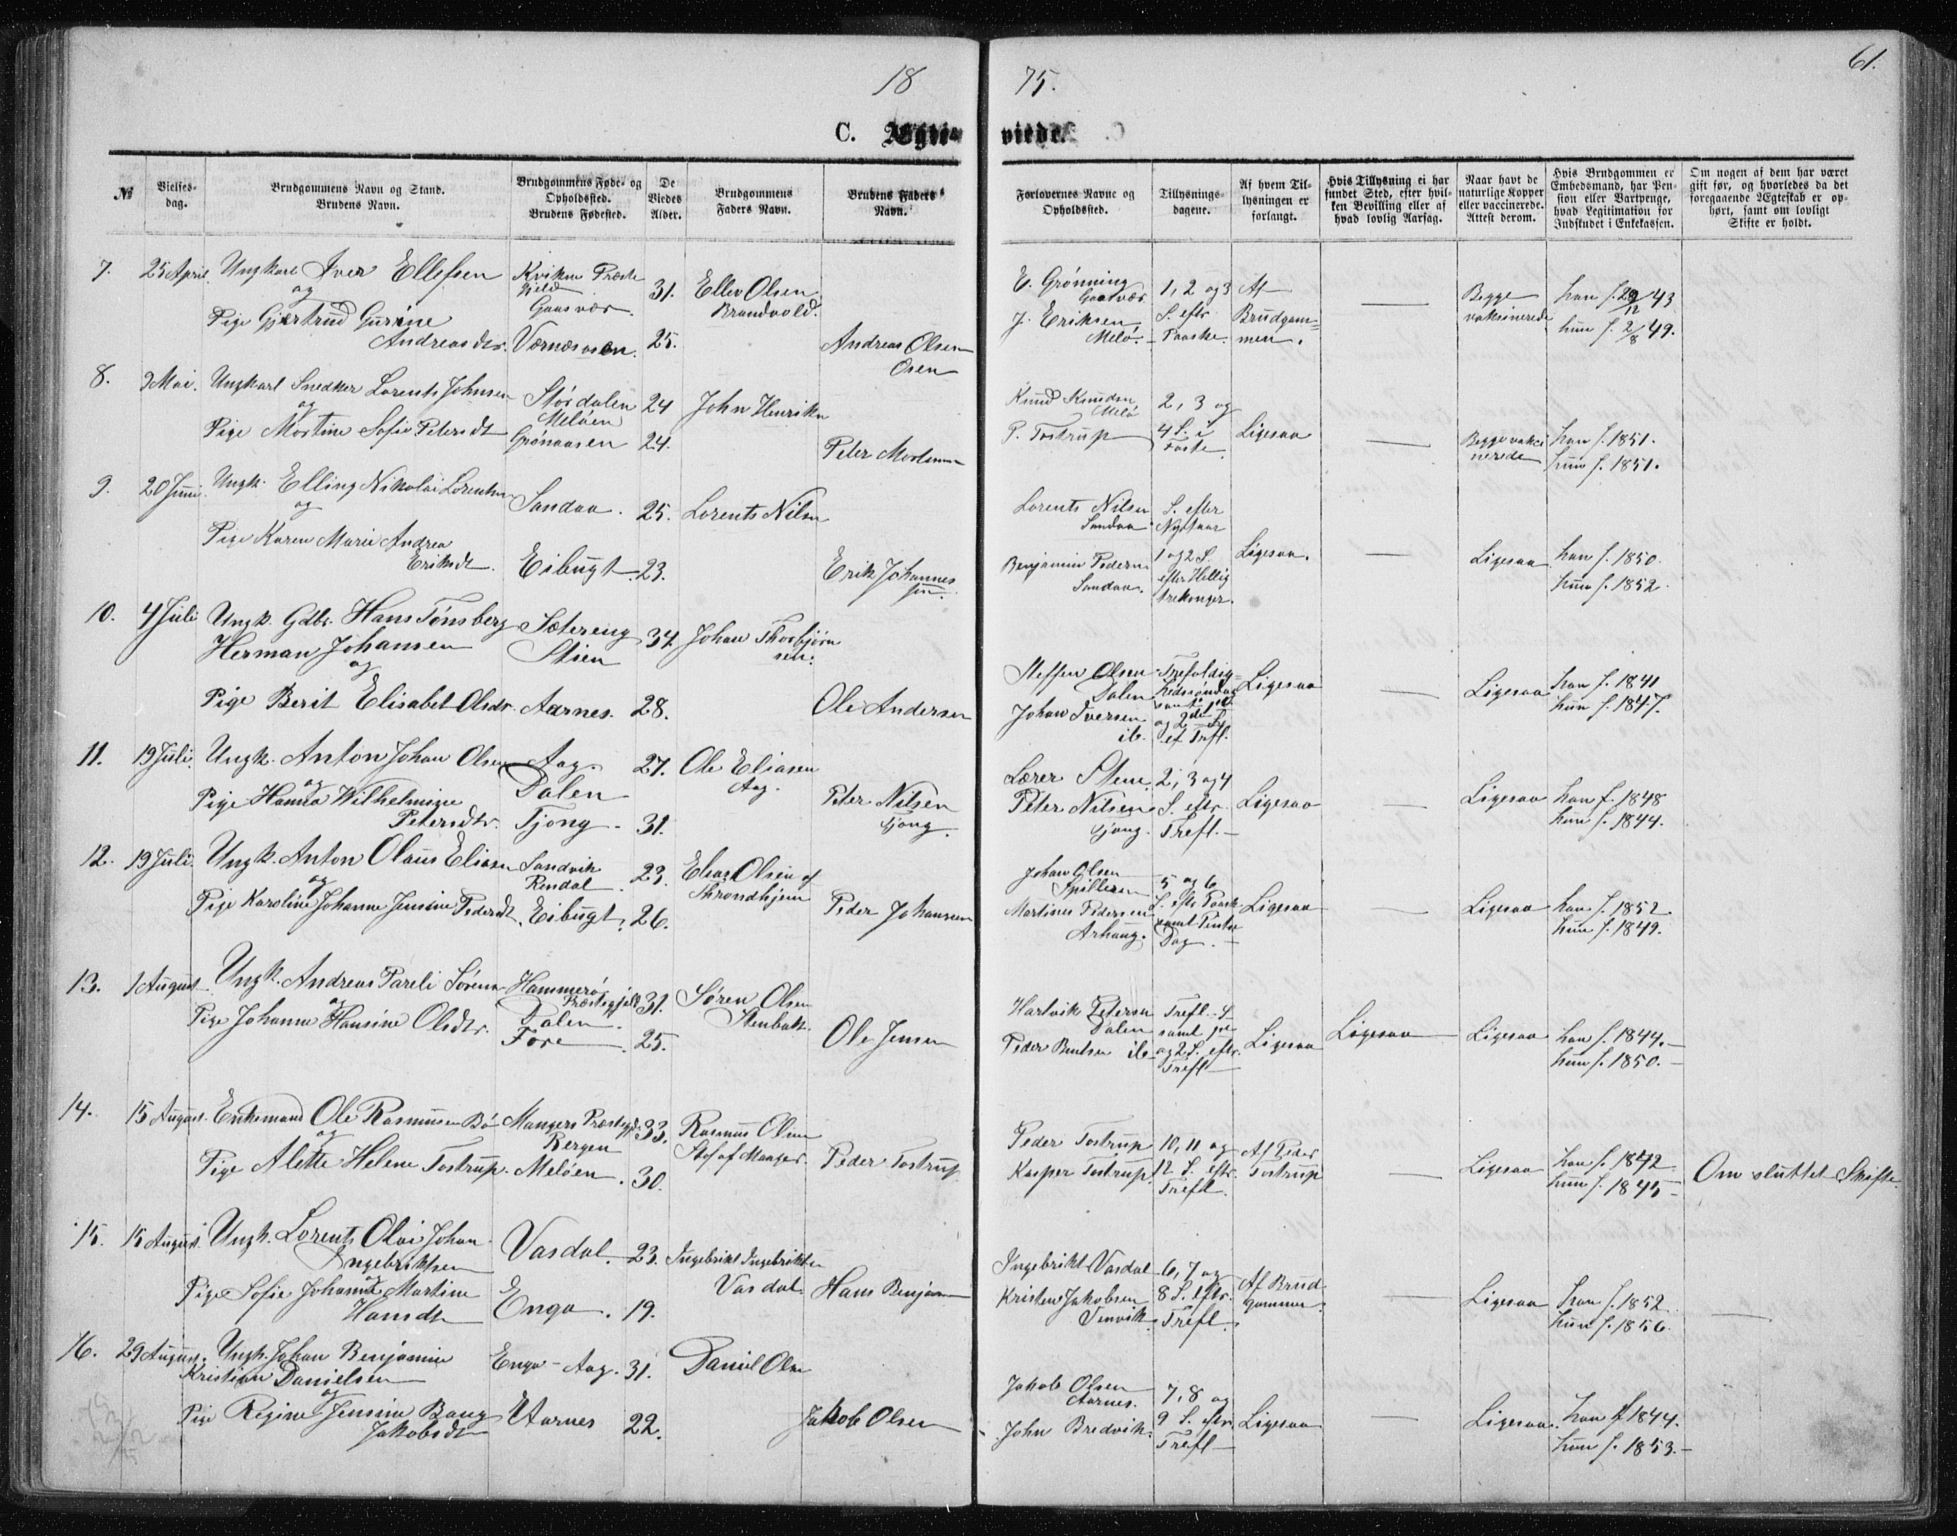 18 75. 61.
C. Ægte- viede.
№
Vielses-dag.
Brudgommens Navn og Stand. Brudens Navn.
Brudgommens Føde- og Opholdssted. Brudens Fødested.
De Viedes Alder.
Brudgommens Faders Navn.
Brudens Faders Navn.
Forlovernes Navne og Opholdssted.
Tillysnings-dagene.
Af hvem Tillysningen er forlangt.
Hvis Tillysning ei har fundet Sted, efter hvilken Bevilling eller af hvad lovlig Aarsag.
Naar havt de naturlige Kopper eller vaccinerede. Attest derom.
Hvis Brudgommen er Embedsmand, har Pension eller Vartpenge, hvad Legitimation for Indskudet i Enkekassen.
Om nogen af dem har været gift før, og hvorledes da det foregaaende Ægteskab er ophørt, samt om lovligt Skifte er holdt.
7. 25 April. Ungkarl Iver Ellefsen Kvikne Præstegjeld Gaasvær. 31. Ellev Olsen Brandvold.
og
Pige Gjertrud Gurine Andreasdtr. Værnæsosen. 25. Andreas Olsen Osen
E. Grønning Gaasvær 1, 2 og 3 Af
J. Eriksen Melø. S. eftr Paaske. Brudgommen. — Begge vaksinerede han f. 29/12 43
hun f. 2/8 49.
8. 9 Mai. Ungkarl Snedker Lorents Johnsen Størdalen Meløen 24 John Henriksn
og
Pige Mortine Sofie Petersdt Grønaasen 24. Peter Mortensen
Knud Knudsen Melø 2, 3 og
P. Tostrup 4 S. i Faste. Ligesaa — Begge vaksinerede han f. 1851.
hun f. 1851.
9. 20 Juni. Ungk. Elling Nikolai Lorentsen Sandaa. 25. Lorents Nilsen
og
Pige Karen Marie Andrea Eriksdt. Eibugt. 23. Erik Johannessen.
Lorents Nilsen Sandaa S. efter Nytaar
Benjamin Pedersn Sandaa. 1 og 2 S. efter Hellig trekonger. Ligesaa. — Ligesaa han f. 1850.
hun f. 1852.
10. 4 Juli Ungk. Gdbr. Hans Tønsberg Herman Johansen Sætereng Stien 34. Johan Thorbjørnsen.
og
Pige Berit Elisabet Olsdr. Aarnes. 28. Ole Andersen
Steffen Olsen Dalen Trefoldighedssøndag samt 1ste
Johan Iversen ib. og 2den S. ef. Trefl. Ligesaa — Ligesaa han f. 1841
hun f. 1847.
11. 19 Juli. Ungk. Anton Johan Olsen Aag. Dalen 27. Ole Eliasen Aag.
og
Pige Hanna Wilhelmine Petersdtr. Tjong. 31. Peter Nilsen Tjong.
Lærer Stene 2, 3 og 4
Peter Nilsen Tjong. S. eftr. Trefl. Ligesaa — Ligesaa han f. 1848
hun f. 1844.
12. 19 Juli. Ungk. Anton Olaus Eliasen Sandvik Rendal 23. Elias Olsen af Throndhjem
og
Pige Karoline Johanne Jensine Pedersdt. Eibugt. 26. Peder Johansen
Johan Olsen Spilderen 5 og 6
Martinus Pedersen Arhaug. S. eftr Paaske samt Pintse Dag. Ligesaa — Ligesaa han f. 1852
hun f. 1849.
13. 1 August. Ungk. Andreas Pareli Sørensn Hammerø Præstegjeld Dalen. 31. Søren Olsen Stenbak.
og
Pige Johanna Hansine Olsdtr. Fore. 25. Ole Jensen
Hartvik Petersen Dalen Trefl.
Peder Bentsen ib. samt og 2 S. eftr. Trefl. Ligesaa Ligesaa Ligesaa han f. 1844.
hun f. 1850.
14. 15 August. Enkemand Ole Rasmussen Bø Mangers Præstegjd Bergen 33. Rasmus Olsen af Manger.
og
Pige Alette Helene Tostrup. Meløen. 30. Peder Tostrup
Peder Tostrup 10, 11 og
Kasper Tostrup. 12 S. eftr. Trefl. Af Peder Tostrup — Ligesaa han f. 1842
hun f. 1845 Om sluttet Skifte.
15. 15 August. Ungk. Lorents Olai Johan Ingebriktsen Vasdal. 23. Ingebrikt Ingebriktsn Vasdal.
og
Pige Sofie Johanna Martine Hansdt Enga. 19. Hans Benjamin
Ingebrikt Vasdal 6, 7 og
Kristen Jakobsen 8 S. eftr. Trefl. Af Brudgommen. — Ligesaa han f. 1852.
hun f. 1856. —
16. 29 August. Ungk. Johan Benjamin Kristian Danielsen Enga - Aag. 31. Daniel Olsn
og
Pige Regine Jensine Bang Jakobsdt Aarnes 22. Jakob Olsen
Jakob Olsen Aarnes. 7, 8 og
John Bredvik. 9 S. eftr. Trefl. Ligesaa — Ligesaa. han f. 1844.
hun f. 1853.